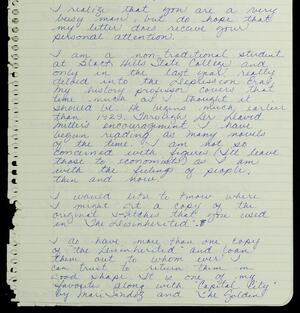 I realize that you are a very
busy man, but do hope that
my letter does receive your
personal attention.
I am a non-traditional student
at Black Hills State College and
only in the last year really
delved into the Depression Era.
My history professor covers that
time much as I thought it
should be. He begins much earlier
than 1929. Through her
Miller's encouragement I have
begun reading as many novels
of the time. I am not so
concerned with figures (I'll leave
those to economists) as I am
with the feelings of people,
then and now.
I would like to know where
I might get a copy of the
original sketches that you used
in "The Disinherited".
I do have more than one copy
of The Disinherited and loan
them out to whom ever I
can trust to return them in
good shape. It is one of my
favorites along with "Capital City"
by Mari Sandoz and The Golden